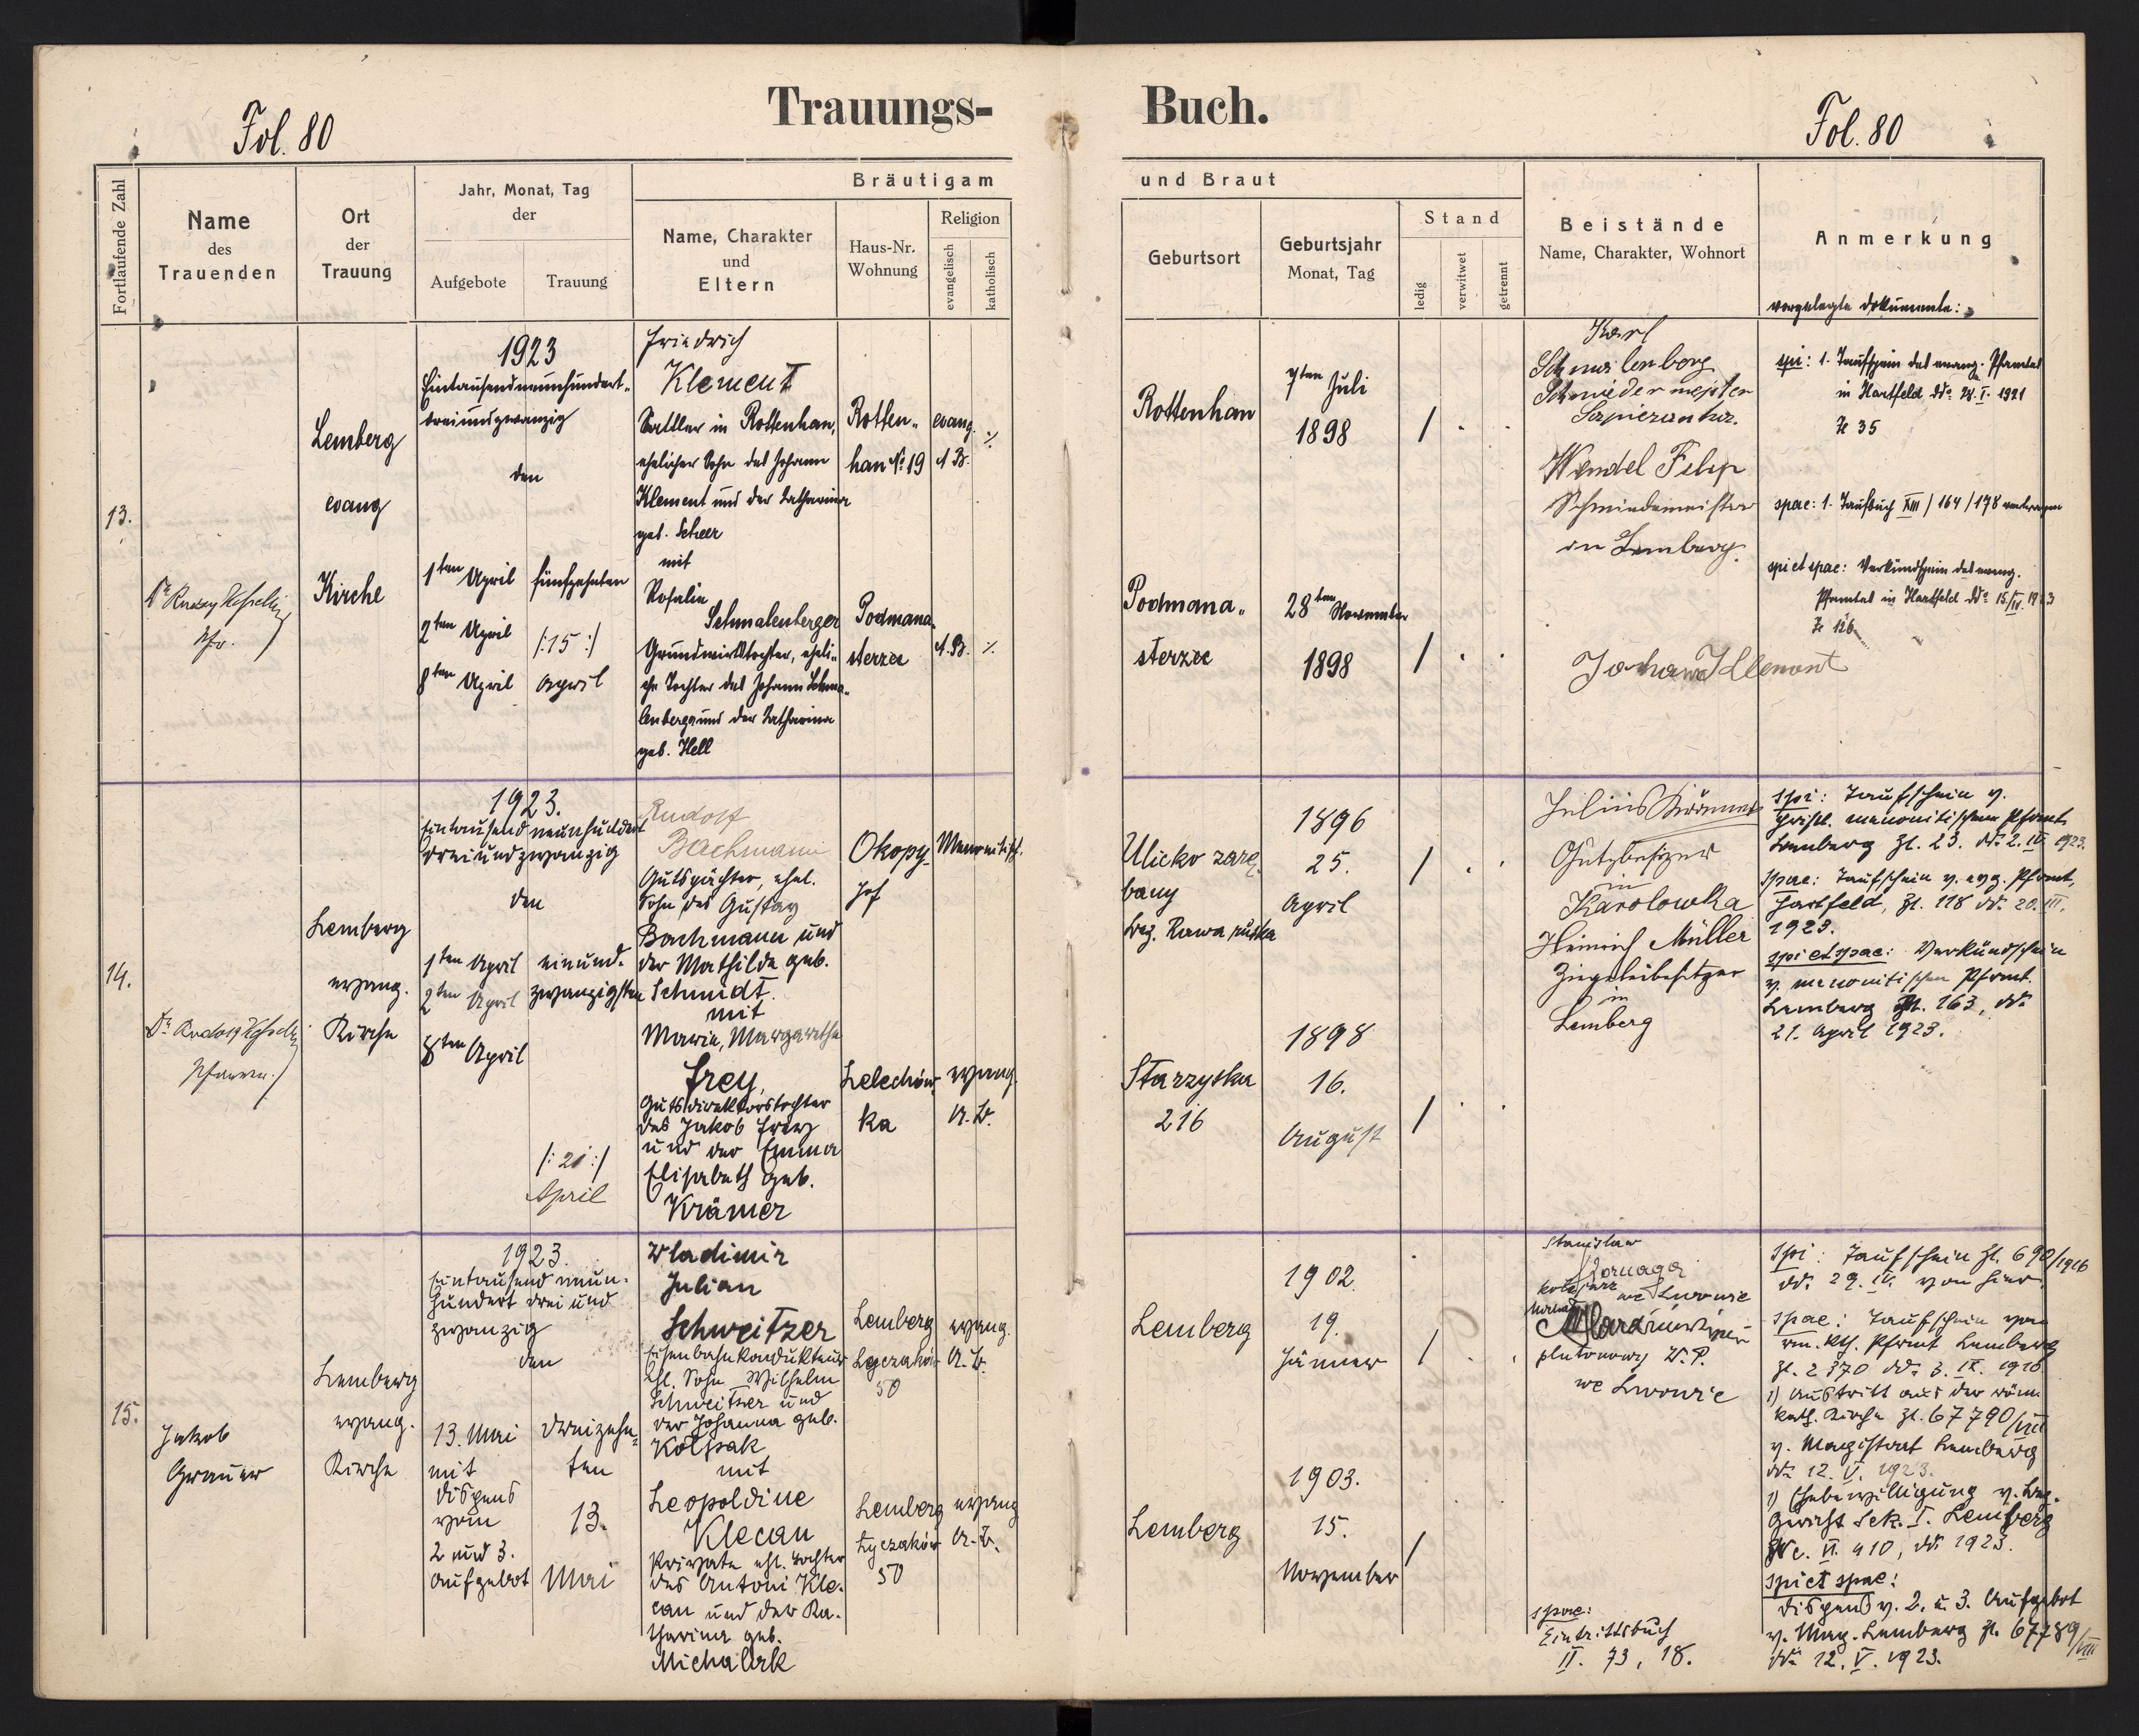 Trauungs- Buch.
Fol. 80
Fol. 80
Fortlaufende Zahl
Name
des
Trauenden
Ort
der
Trauung
Jahr, Monat, Tag
der
Aufgebote
Trauung
Bräutigam
und Braut
Name, Charakter
und
Eltern
Haus-Nr.
Wohnung
Religion
evangelisch
katholisch
Geburtsort
Geburtsjahr
Monat, Tag
Stand
ledig
verwitwet
getrennt
Beistände
Name, Charakter, Wohnort
Anmerkung
vorgelegte Dokumente:
13.
Pfr.
Lemberg
evang
Kirche
1923
Eintausendneunhundert-
dreiundzwanzig
den
1ten April
2ten April
8ten April
fünfzehnten
/:15:/
April
Friedrich
Klement
Sattler in Rottenhan,
ehelicher Sohn des Johann
Klement und der Katharina
geb. Scheer
mit
Rosalie
Schmalenberger
Grundwirtstochter, eheli-
che Tochter des Johann Schma-
lenberger und der Katharina
geb. Hell
Rotten-
han No 19
Podmana-
sterzec
evang.
A.B.
%
A.B. %
Rottenhan
7ten Juli
1898
/ . .
Podmana-
sterzec
28ten November
1898
/ . .
Karl
Schmalenberg
Schmiedemeister
Wendel Filip
Schmiedemeister
in Lemberg.
Johann Klemont
spi: 1. Taufschein des evang. Pfarramtes
in Hartfeld ddo 24. I. 1921
Z 35
spae: 1. Taufbuch XIII / 164 / 178
spi et spae: Verkündschein des evang.
Pfarramtes in Hartfeld ddo 15/IV. 1923
Z 126
14.
Pfarrer.
Lemberg
evang.
Kirche
1923.
Eintausend neunhundert
dreiundzwanzig
den
1ten April
2ten April
8ten April
einund-
zwanzigsten
/:21:/
April
Rudolf
Bachmann
Gutspächter, ehel.
Sohn des Gustav
Bachmann und
der Mathilde geb.
Schmidt.
mit
Maria, Margarethe
Frey,
Gutsdirektorstochter
des Jakob Frey
und der Emma
Elisabeth geb.
Krämer
Okopy-
hof
Lelechów-
ka
Menonitisch.
evang.
A.B.
Ulicko zarę-
bany
bez. Rawa ruska
1896
25.
April
/ . .
Starzyska
216
1898
16.
August
/ . .
Julius
Gutsbesitzer
in
Karolowka
Heinrich Müller
Ziegeleibesitzer
in
Lemberg
spi: Taufschein v.
christl. menonitischen Pfarramt.
Lemberg Zl. 23. ddo 2. IV. 1923.
spae: Taufschein v. evg. Pfarramt,
Hartfeld, Zl. 118 ddo 20. III.
1923.
spi et spae: Verkündschein
v. menonitischen Pfarramt.
Lemberg Zl. 163, ddo
21. April 1923.
15.
Jakob
Grauer
Lemberg
evang.
Kirche
1923.
Eintausend neun-
hundert drei und
zwanzig
den
13. Mai
mit
Dispens
vom
2 und 3.
Aufgebot
dreizehn-
ten
13.
Mai
Wladimir
Julian
Schweitzer
Eisenbahnkondukteur
ehl. Sohn Wilhelm
Schweitzer und
der Johanna geb.
Kolpak
mit
Leopoldine
Klecan
Private ehl. Tochter
des Antoni Kle-
can und der Ka-
tharina geb.
Michalak
Lemberg
Łyczaków
50
Lemberg
Łyczaków
50
evang.
A.B.
evang
A.B.
Lemberg
1902.
19.
Jänner
/ . .
Lemberg
1903.
15.
November
/
Stanisław
kolejarz
we Lwowie
plutonowy W.P.
we Lwowie
spae:
Eintrittsbuch
II. 73, 18.
spi: Taufschein Zl. 690/1916
ddo 29. IV. von hier.
spae: Taufschein vom
röm. kth. Pfarramt Lemberg
Zl. 2370 ddo 3. IX. 1916
1) Austritt aus der röm.
kath. Kirche Zl. 67790/VIII
v. Magistrat Lemberg
ddo 12. V. 1923.
1) Ehebewilligung v. Bez.
Gericht Sek. I. Lemberg
Nc. VI. 410, ddo 1923.
spi et spae:
Dispens v. 2. u. 3. Aufgebot
v. Mag. Lemberg Zl. 67789/VIII
ddo 12. V. 1923.